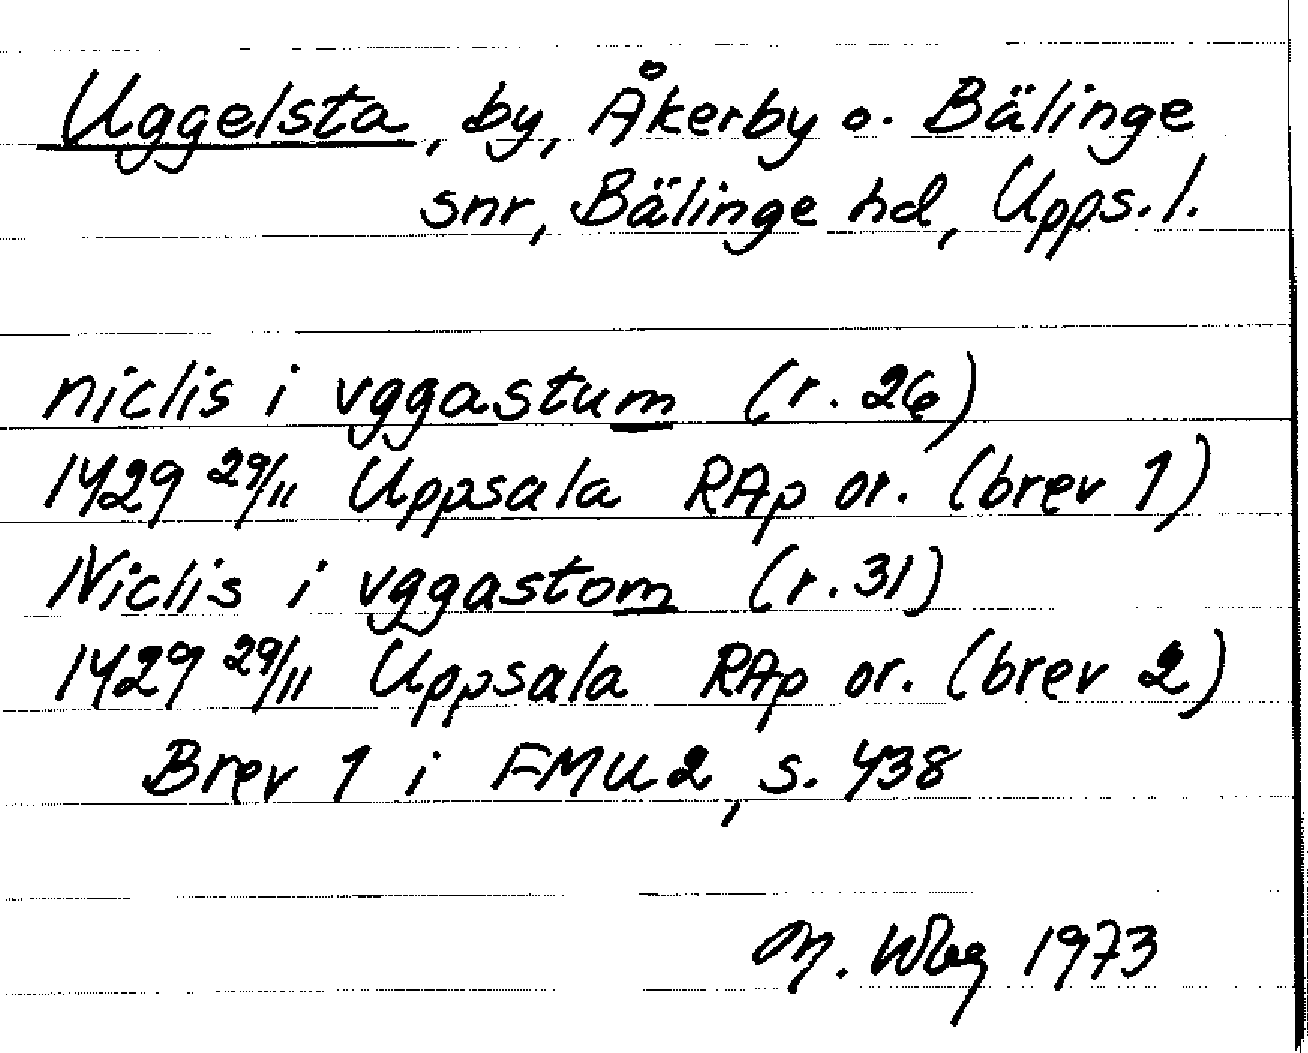 Uggelsta, by, Åkerby o. Bälinge
snr, Bälinge hd, Upps. l.
niclis i vggastum (r. 26)
1429 29/11 Uppsala RAp or. (brev 1)
Niclis i vggastom (r. 31)
1429 29/11 Uppsala RAp or. (brev 2)
Brev 1 i FMU 2, s. 438
M. Wbg 1973